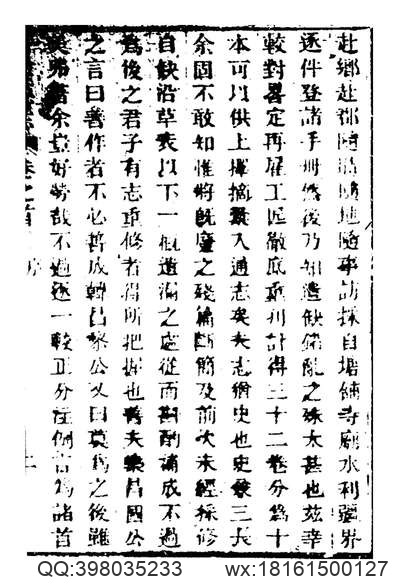 赴鄉赴都隨協隨地隨事訪採自塘鋪寺廟水利疆界
逐件登諸手冊然後乃知遺缺錯亂之殊太甚也茲幸
較對畧定再雇工匠徹底重刋計得三十二卷分爲十
本可以供上擇摘纂入通志矣夫志猶史也史兼三長
余固不敢知惟將既廢之殘編斷簡及前次未經採修
自缺沿草表以下一概遺漏之處從而斟酌補成不過
爲後之君子有志重修者得所把握也昔夫樂昌國公
之言曰善作者不必善成韓昌黎公又曰莫爲之後雖
美弗著余豈好勞哉不過逐一較正分注側言爲諸首
卷之首
序
QQ:398035233 wx:18161500127